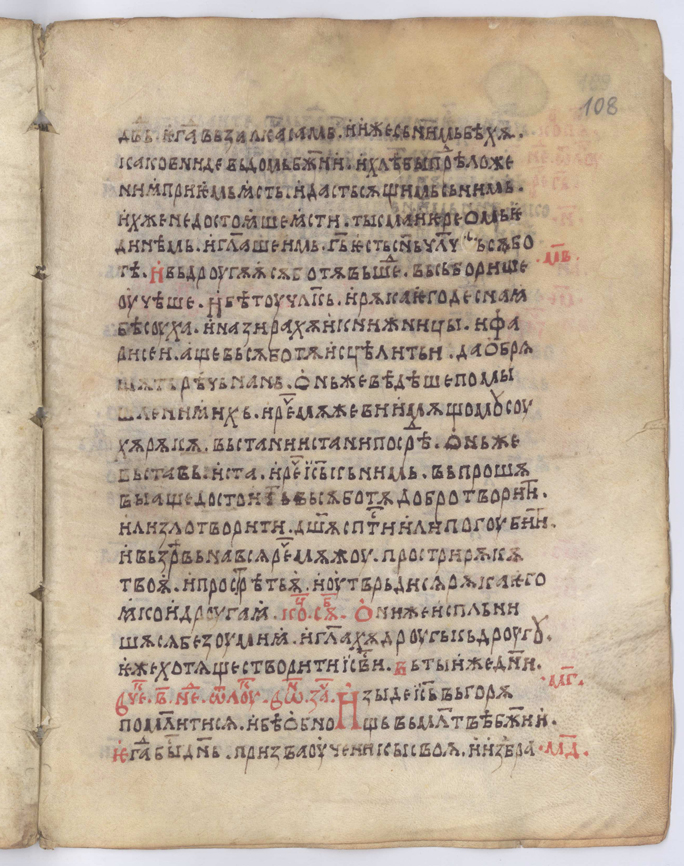 108
дв҃ь. ѥгⷣа въꙁалка самь. и иже съ нимь бѣхѫ.
како вниде въ домь бж҃ии. и хлѣбы прѣложе
ниꙗ приѥмь ꙗсть. и дасть сѫщимь съ нимь.
ихже не достоꙗше ꙗсти. тъсмаꙗ иѥреомь ѥ
динѣмь. и гл҃аше имь. гь҃ ѥсть сн҃ь чл҃чⷭ ъ сѫбо
тѣ. И въ дроугѫѫ сѫботѫ въшеⷣ. въ съборище
оучѣше. И бѣ тоу чл҃кь. и рѫка ѥго деснаꙗ
бѣ соуха. и наꙁирахѫ и книжници. и фа
рисеи. аще въ сѫботѫ исцѣлитьи. да обрѧ
щѫть рѣчь нань. Онь же вѣдѣше помы
шлениꙗ ихь. и реⷱ мѫжеви имѫщомоу соу
хѫ рѫкѫ. въстани и стани посрⷣѣ. Онь же
въставь. и ста. и реⷱ іс҃ь кь нимь. въпрошѫ
вы аще достоить вь сѫботѫ добро творитⷤи.
или ꙁло творити. дш҃ѫ спⷭти или погоубитⷤи.
и въꙁрⷺвь на всѧ реⷱ мѫжоу. простри рѫкѫ
твоѫ. и прострⷺтьѫ. и оутврьди сѧ рѫка ѥго
ꙗко и дроугаꙗ. коⷰ. сѫⷠ. Они же испльни
шѧ сѧ беꙁоумиꙗ. и гл҃ахѫ дроугь кь дроугоу.
что хотѧще створити іс҃ви. Въ ты же дн҃и.
мв҃.
мг҃.
Иꙁыде іс҃ь въ горѫ
помл҃ити сѧ. и бѣ обнощь вь мл҃твѣ бж҃ии.
Ѥгⷣа быⷭ дн҃ь. приꙁва оученикы своѫ. и иꙁбра
мд҃.